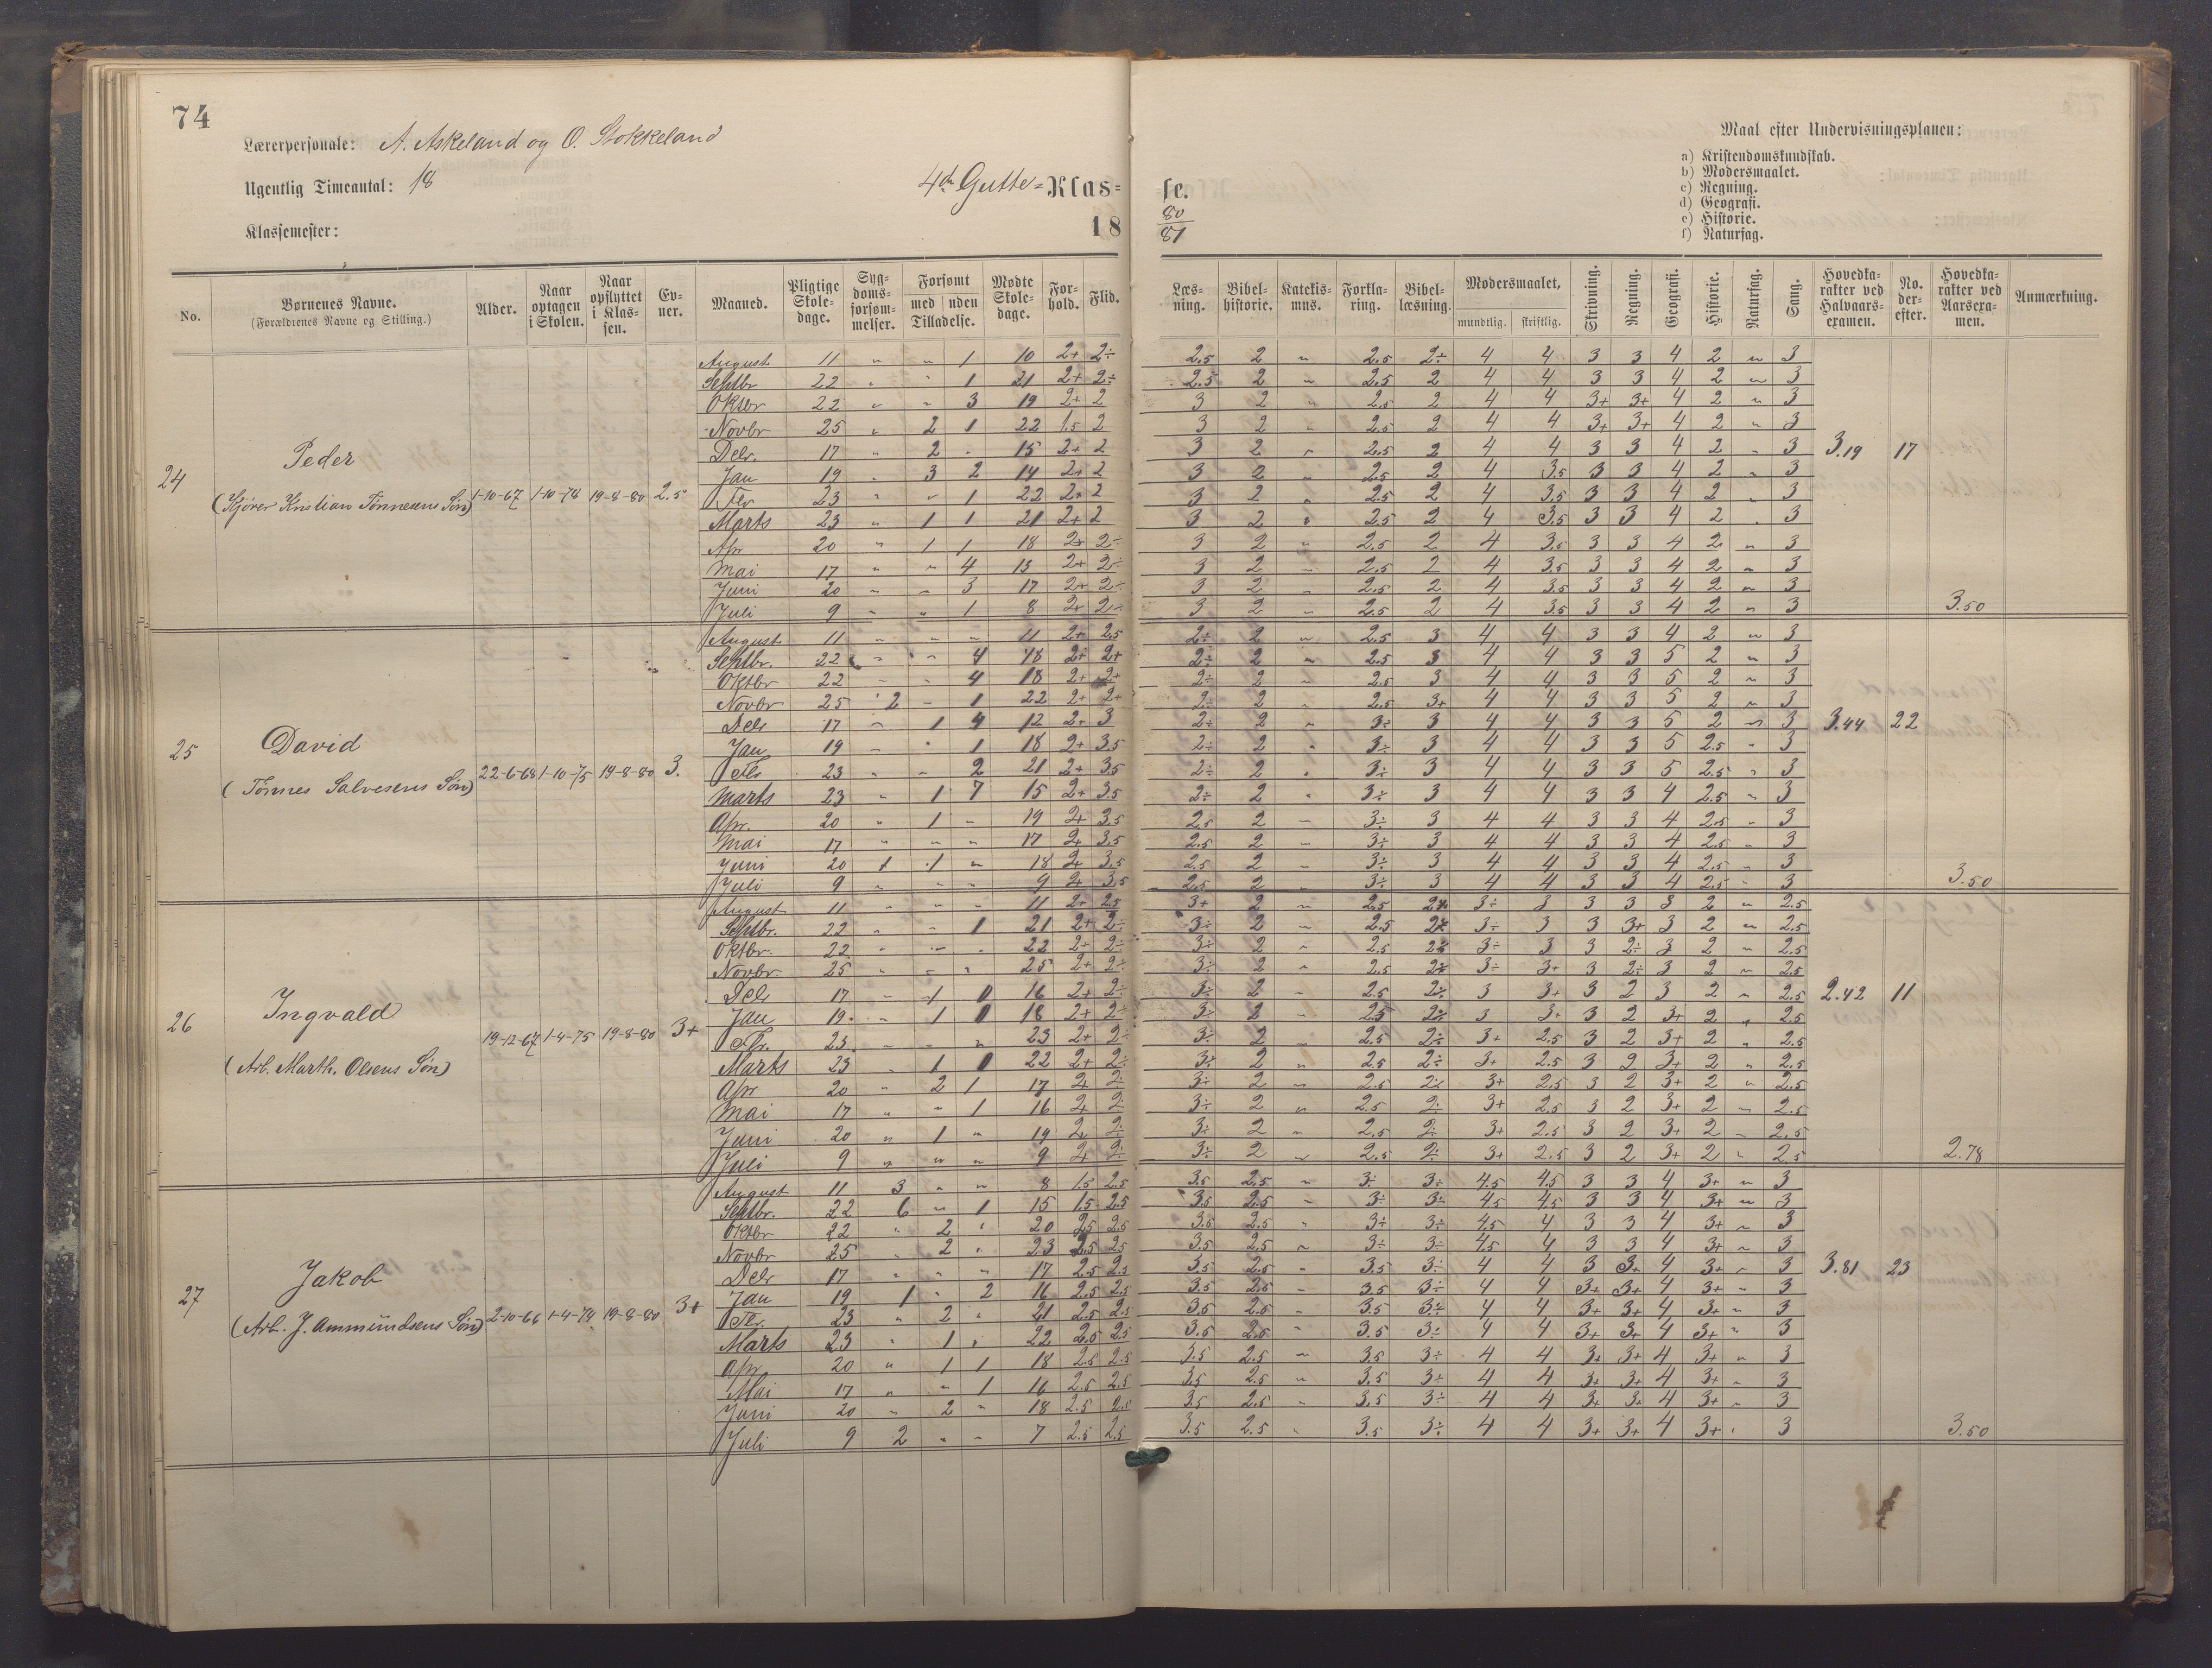 74
Lærerpersonale: A. Askeland og O. Stokkeland
Ugentlig Timeantal: 18
4de Gutte=Klas= se.
Klassemester:
18 80/81
Maal efter Undervisningsplanen:
a) Kristendomskundskab.
b) Modersmaalet.
c) Regning.
d) Geografi.
e) Historie.
f) Naturfag.
No. | Børnenes Navne. (Forældrenes Navne og Stilling.) | Alder. | Naar optagen i Skolen. | Naar opflyttet i Klassen. | Evner. | Maaned. | Pligtige Skoledage. | Sygdomsforsømmelser. | Forsømt med / uden Tilladelse. | Mødte Skoledage. | Forhold. | Flid. | Læsning. | Bibelhistorie. | Katekismus. | Forklaring. | Bibellæsning. | Modersmaalet, mundtlig. | skriftlig. | Skrivning. | Regning. | Geografi. | Historie. | Naturfag. | Sang. | Hovedkarakter ved Halvaarsexamen. | No. derefter. | Hovedkarakter ved Aarsexamen. | Anmærkning.
24 Peder
1-10-67 1-10-74 19-8-80 2.5
August 11 " " 1 10 2+ 2÷ 2.5 2 " 2.5 2÷ 4 4 3 3 4 2 " 3
Septbr 22 " " 1 21 2+ 2÷ 2.5 2 " 2.5 2 4 4 3 3 4 2 " 3
Oktbr 22 " " 3 19 2+ 2 3 2 " 2.5 2 4 4 3+ 3+ 4 2 " 3
Novbr 25 " 2 1 22 1.5 2 3 2 " 2.5 2 4 4 3+ 3+ 4 2 " 3
Debr. 17 " 2 " 15 2+ 2 3 2 " 2.5 2 4 4 3 3 4 2 " 3 3.19 17
Jan 19 " 3 2 14 2+ 2 3 2 " 2.5 2 4 3.5 3 3 4 2 " 3
Fbr 23 " " 1 22 2+ 2 3 2 " 2.5 2 4 3.5 3 3 4 2 " 3
Marts 23 " 1 1 21 2+ 2 3 2 " 2.5 2 4 3.5 3 3 4 2 " 3
Apr 20 " 1 1 18 2+ 2÷ 3 2 " 2.5 2 4 3.5 3 3 4 2 " 3
Mai 17 " " 4 13 2+ 2÷ 3 2 " 2.5 2 4 3.5 3 3 4 2 " 3
Juni 20 " " 3 17 2+ 2÷ 3 2 " 2.5 2 4 3.5 3 3 4 2 " 3
Juli 9 " " 1 8 2+ 2÷ 3 2 " 2.5 2 4 3.5 3 3 4 2 " 3 3.50
25 David
(Tönnes Salvesens Sön) 22-6-68 1-10-75 19-8-80 3.
August 11 " " " 11 2+ 2.5 2÷ 2 " 2.5 3 4 4 3 3 4 2 " 3
Septbr. 22 " " 4 18 2+ 2+ 2÷ 2 " 2.5 3 4 4 3 3 5 2 " 3
Oktbr 22 " " 4 18 2+ 2+ 2÷ 2 " 2.5 3 4 4 3 3 5 2 " 3
Novbr 25 2 " 1 22 2+ 2+ 2÷ 2 " 2.5 3+ 4 4 3 3 5 2 " 3
Debr 17 " 1 4 12 2+ 3 2÷ 2 " 3÷ 3 4 4 3 3 5 2 " 3 3.44 22
Jan 19 " " 1 18 2+ 3.5 2÷ 2 " 3÷ 3 4 4 3 3 5 2.5 " 3
Fbr 23 " " 2 21 2+ 3.5 2÷ 2 " 3÷ 3 4 4 3 3 5 2.5 " 3
Marts 23 " 1 7 15 2+ 3.5 2÷ 2 " 3÷ 3 4 4 3 3 4 2.5 " 3
Apr. 20 " 1 " 19 2+ 3.5 2.5 2 " 3÷ 3 4 4 3 3 4 2.5 " 3
Mai 17 " " " 17 2+ 3.5 2.5 2 " 3÷ 3 4 4 3 3 4 2.5 " 3
Juni 20 1 1 " 18 2+ 3.5 2.5 2 " 3÷ 3 4 4 3 3 4 2.5 " 3
Juli 9 " " " 9 2+ 3.5 2.5 2 " 3÷ 3 4 4 3 3 4 2.5 " 3 3.50
26 Ingvald
(Arb. Marth. Olsens Sön) 19-12-67 1-4-75 19-8-80 3+
August 11 " " " 11 2+ 2.5 3+ 2 " 2.5 2÷ 3÷ 3 3 3 3 2 " 2.5
Septbr. 22 " " 1 21 2+ 2÷ 3÷ 2 " 2.5 2÷ 3÷ 3 3 3+ 3 2 " 2.5
Oktbr. 22 " " " 22 2+ 2÷ 3÷ 2 " 2.5 2÷ 3÷ 3 3 2÷ 3 2 " 2.5
Novbr 25 " " " 25 2+ 2÷ 3÷ 2 " 2.5 2÷ 3÷ 3+ 3 2÷ 3 2 " 2.5
Debr 17 " 1 0 16 2+ 2÷ 3÷ 2 " 2.5 2÷ 3 3+ 3 2 3 2 " 2.5 2.42 11
Jan 19 " 1 0 18 2+ 2÷ 3÷ 2 " 2.5 2÷ 3 3+ 3 2 3+ 2 " 2.5
Fbr. 23 " " " 23 2+ 2÷ 3÷ 2 " 2.5 2÷ 3+ 2.5 3 2 3+ 2 " 2.5
Marts 23 " 1 0 22 2+ 2÷ 3+ 2 " 2.5 2÷ 3+ 2.5 3 2 3+ 2 " 2.5
Apr 20 " 2 1 17 2+ 2÷ 3÷ 2 " 2.5 2÷ 3+ 2.5 3 2 3+ 2 " 2.5
Mai 17 " " 1 16 2+ 2÷ 3÷ 2 " 2.5 2÷ 3+ 2.5 3 2 3+ 2 " 2.5
Juni 20 " 1 " 19 2+ 2÷ 3÷ 2 " 2.5 2÷ 3+ 2.5 3 2 3+ 2 " 2.5
Juli 9 " " " 9 2+ 2÷ 3÷ 2 " 2.5 2÷ 3+ 2.5 3 2 3+ 2 " 2.5 2.78
27 Jakob
(Arb. J. Ammundsens Sön) 2-10-66 1-4-74 19-8-80 3+
August 11 3 " " 8 1.5 2.5 3.5 2.5 " 3÷ 3÷ 4.5 4.5 3 3 4 3+ " 3
Septbr. 22 6 " 1 15 1.5 2.5 3.5 2.5 " 3÷ 3÷ 4.5 4.5 3 3 4 3+ " 3
Oktbr 22 " 2 " 20 2.5 2.5 3.5 2.5 " 3÷ 3÷ 4.5 4 3 3 4 3+ " 3
Novbr 25 " 2 " 23 2.5 2.5 3.5 2.5 " 3÷ 3÷ 4.5 4 3 3 4 3+ " 3
Debr 17 " " " 17 2.5 2.5 3.5 2.5 " 3.5 3÷ 4 4 3 3+ 4 3+ " 3 3.81 23
Jan 19 1 " 2 16 2.5 2.5 3.5 2.5 " 3.5 3÷ 4 4 3+ 3+ 4 3+ " 3
Fbr. 23 " 2 " 21 2.5 2.5 3.5 2.5 " 3.5 3÷ 4 4 3+ 3+ 4 3+ " 3
Marts 23 " 1 " 22 2.5 2.5 3.5 2.5 " 3.5 3÷ 4 4 3+ 3+ 4 3+ " 3
Apr 20 " 1 1 18 2.5 2.5 3.5 2.5 " 3.5 3÷ 4 4 3+ 3+ 4 3+ " 3
Mai 17 " " 1 16 2.5 2.5 3.5 2.5 " 3.5 3÷ 4 4 3+ 3+ 4 3+ " 3
Juni 20 " 2 " 18 2.5 2.5 3.5 2.5 " 3.5 3÷ 4 4 3+ 3+ 4 3+ " 3
Juli 9 2 " " 7 2.5 2.5 3.5 2.5 " 3.5 3÷ 4 4 3+ 3+ 4 3+ " 3 3.50